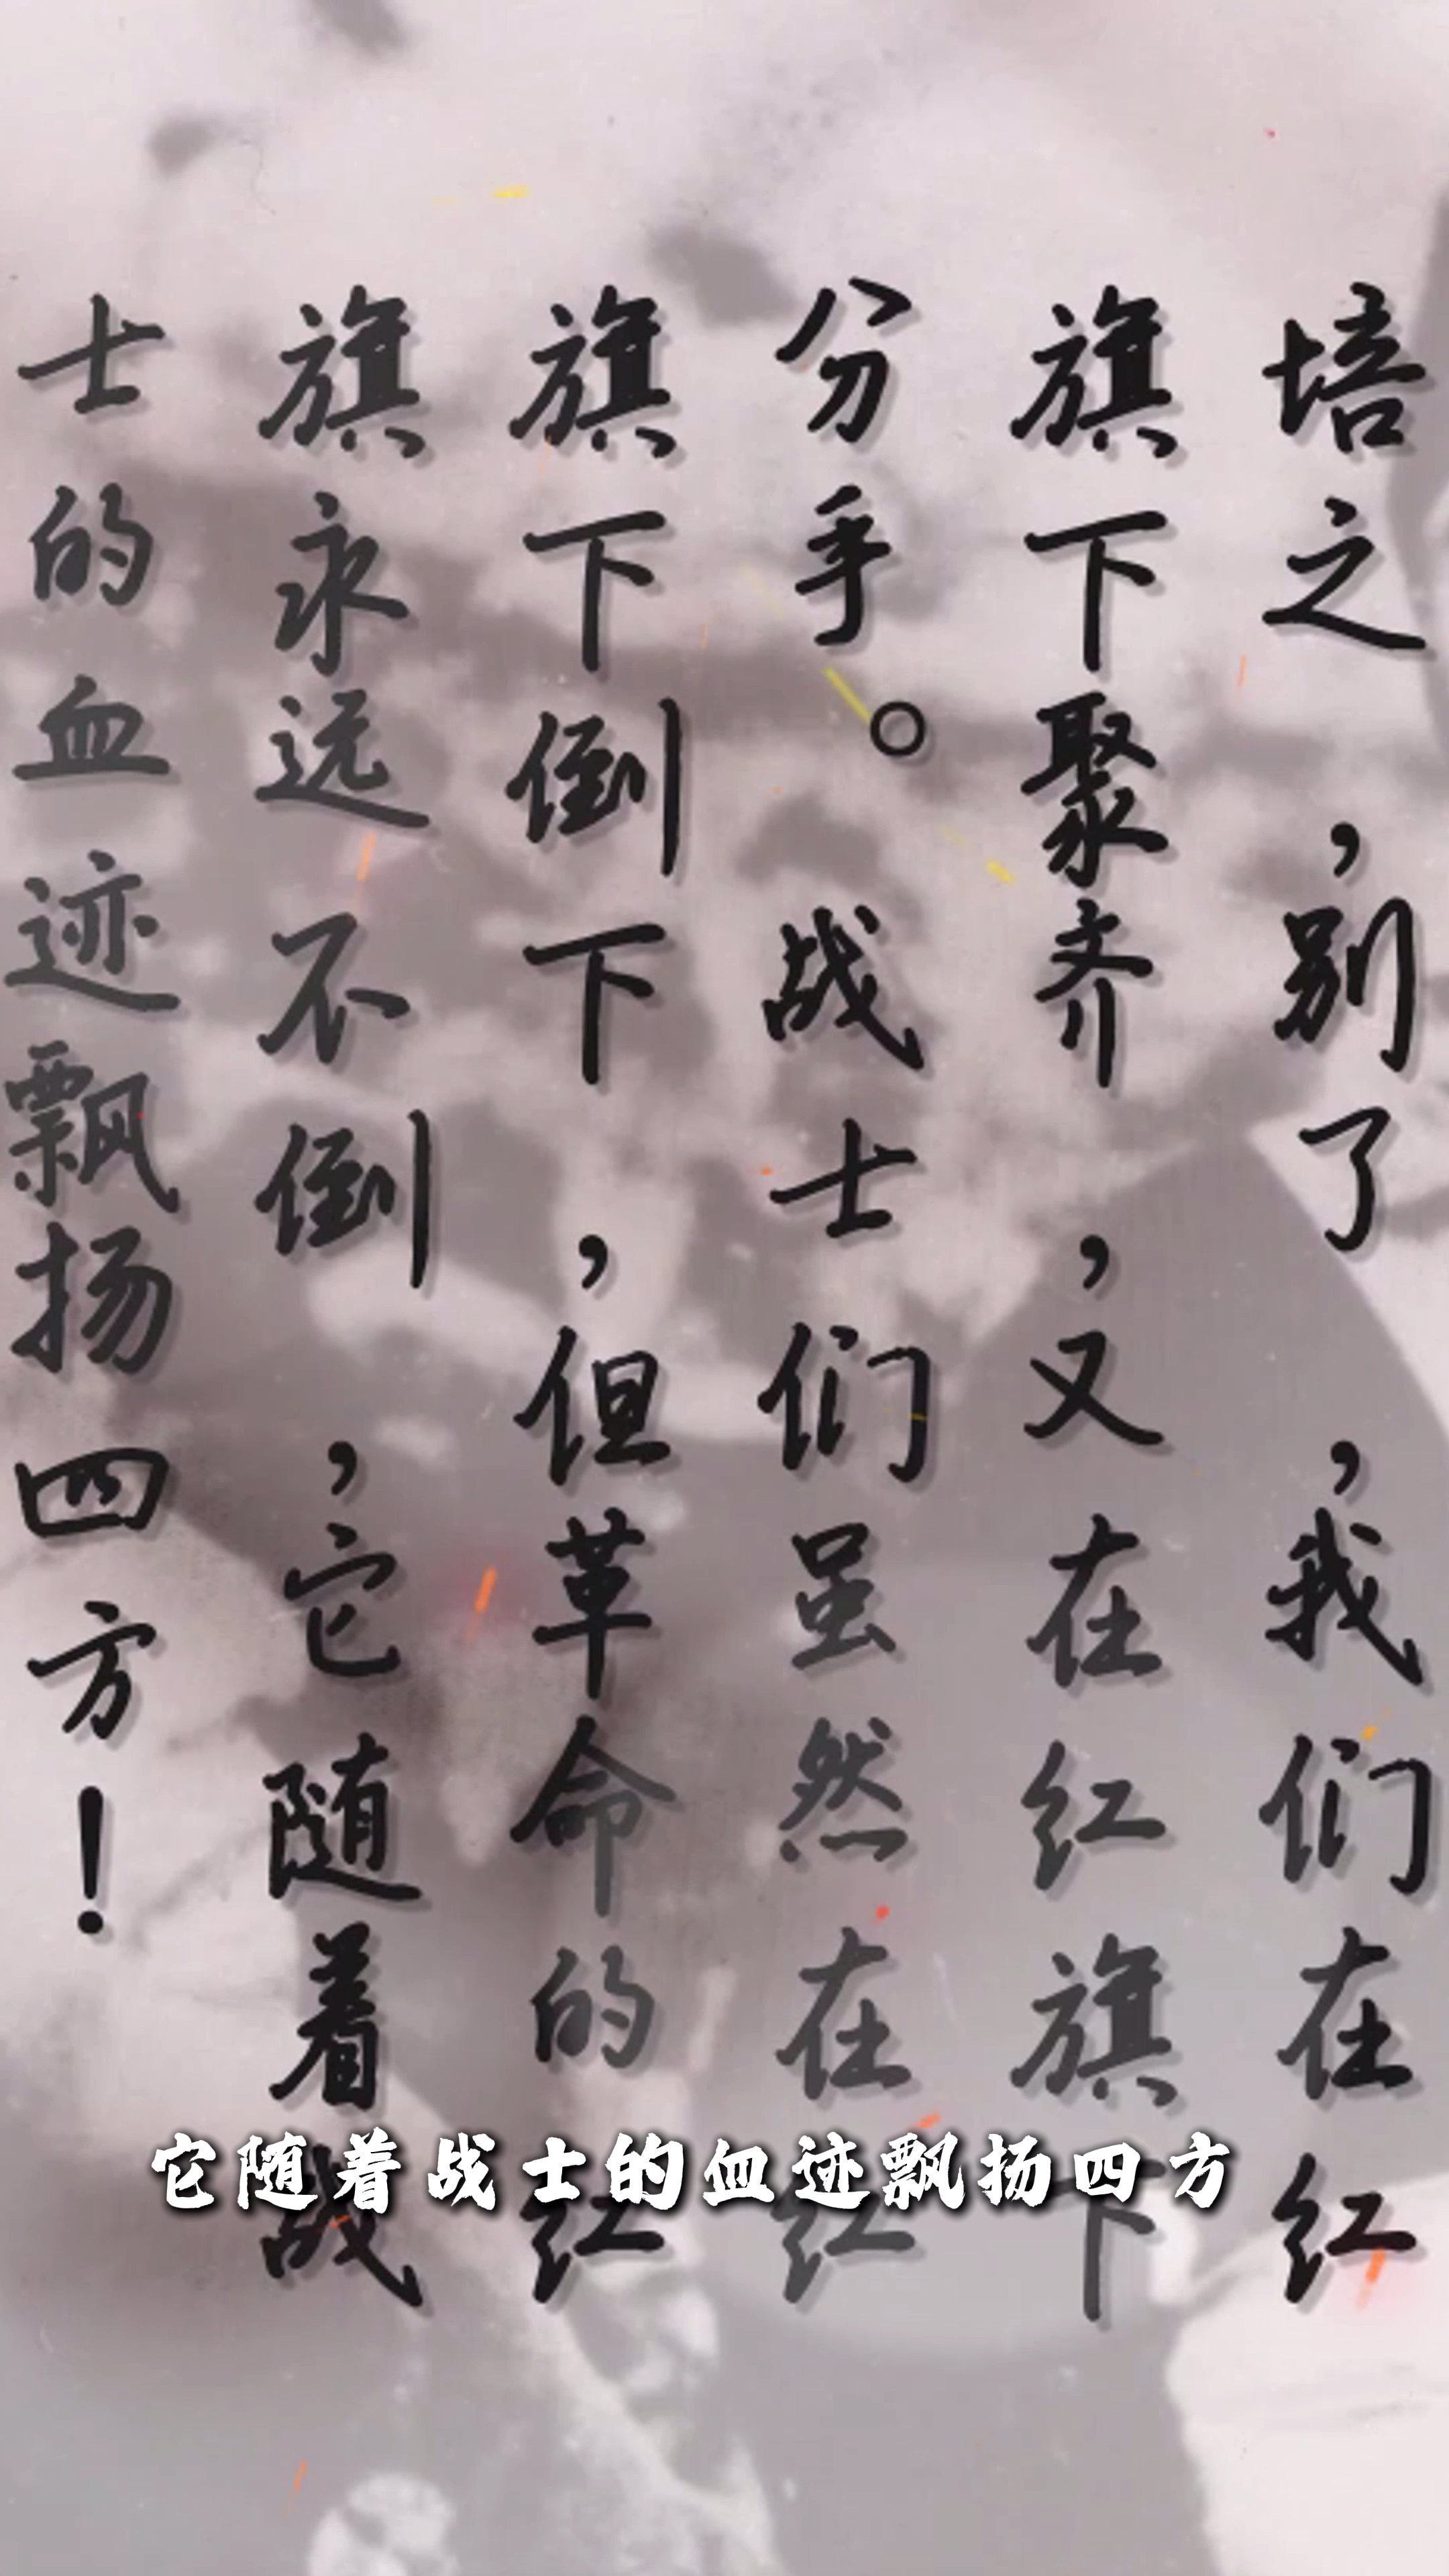 培之，别了，我们在红
旗下聚齐，又在红旗下
分手。战士们虽然在红
旗下倒下，但革命的红
旗永远不倒，它随着战
士的血迹飘扬四方！
它随着战士的血迹飘扬四方